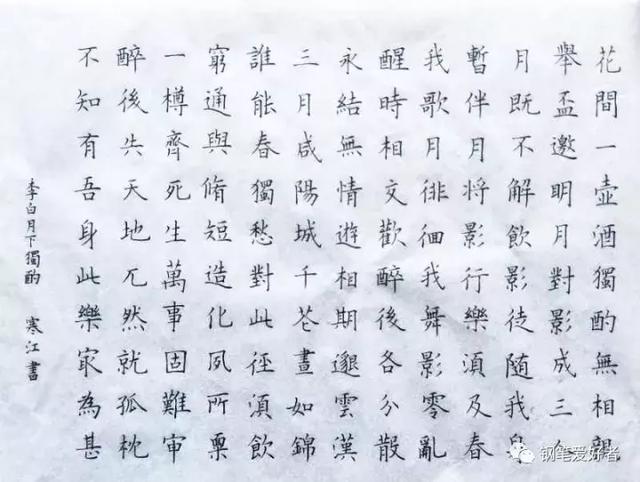 花間一壺酒獨酌無相親
舉盃邀明月對影成三人
月既不解飲影徒隨我身
暫伴月將影行樂湏及春
我歌月徘徊我舞影零亂
醒時相交歡醉後各分散
永結無情遊相期邈雲漢
三月咸陽城千花晝如錦
誰能春獨愁對此徑湏飲
窮通與脩短造化夙所稟
一樽齊死生萬事固難审
醉後失天地兀然就孤枕
不知有吾身此樂冣為甚
李白月下獨酌 寒江書
钢笔爱好者